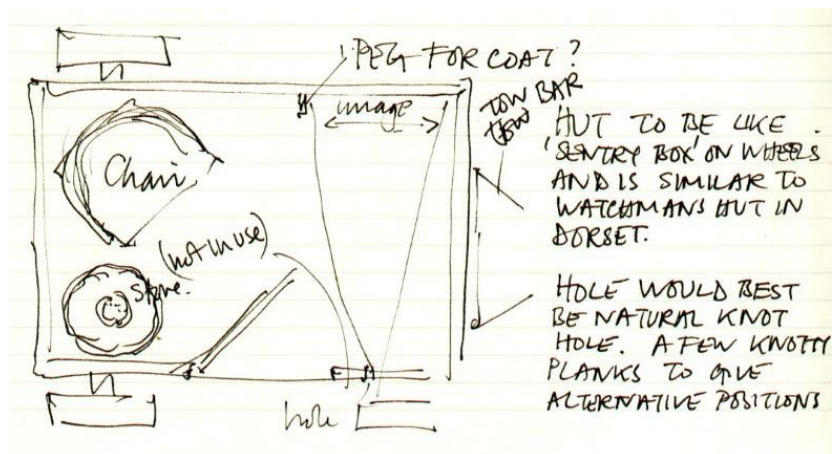 ! PEG FOR COAT ?
image
TOW BAR
VIEW
Chair
(not in use)
Stove.
hole
HUT TO BE LIKE .
'SENTRY BOX' ON WHEELS
AND IS SIMILAR TO
WATCHMANS HUT IN
DORSET.
HOLE WOULD BEST
BE NATURAL KNOT
HOLE. A FEW KNOTTY
PLANKS TO GIVE
ALTERNATIVE POSITIONS